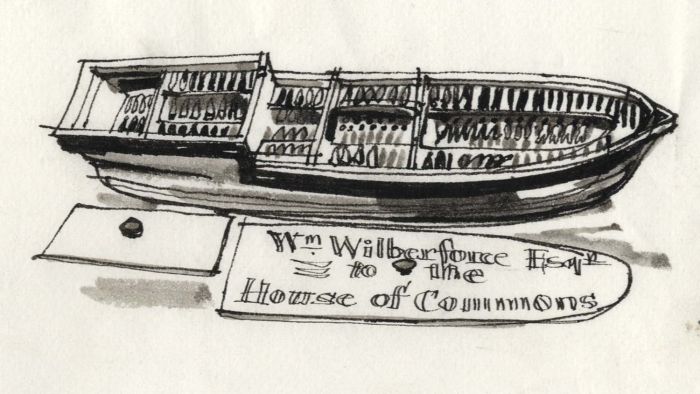 Wm Wilberforce Esqr
to the
House of Commons